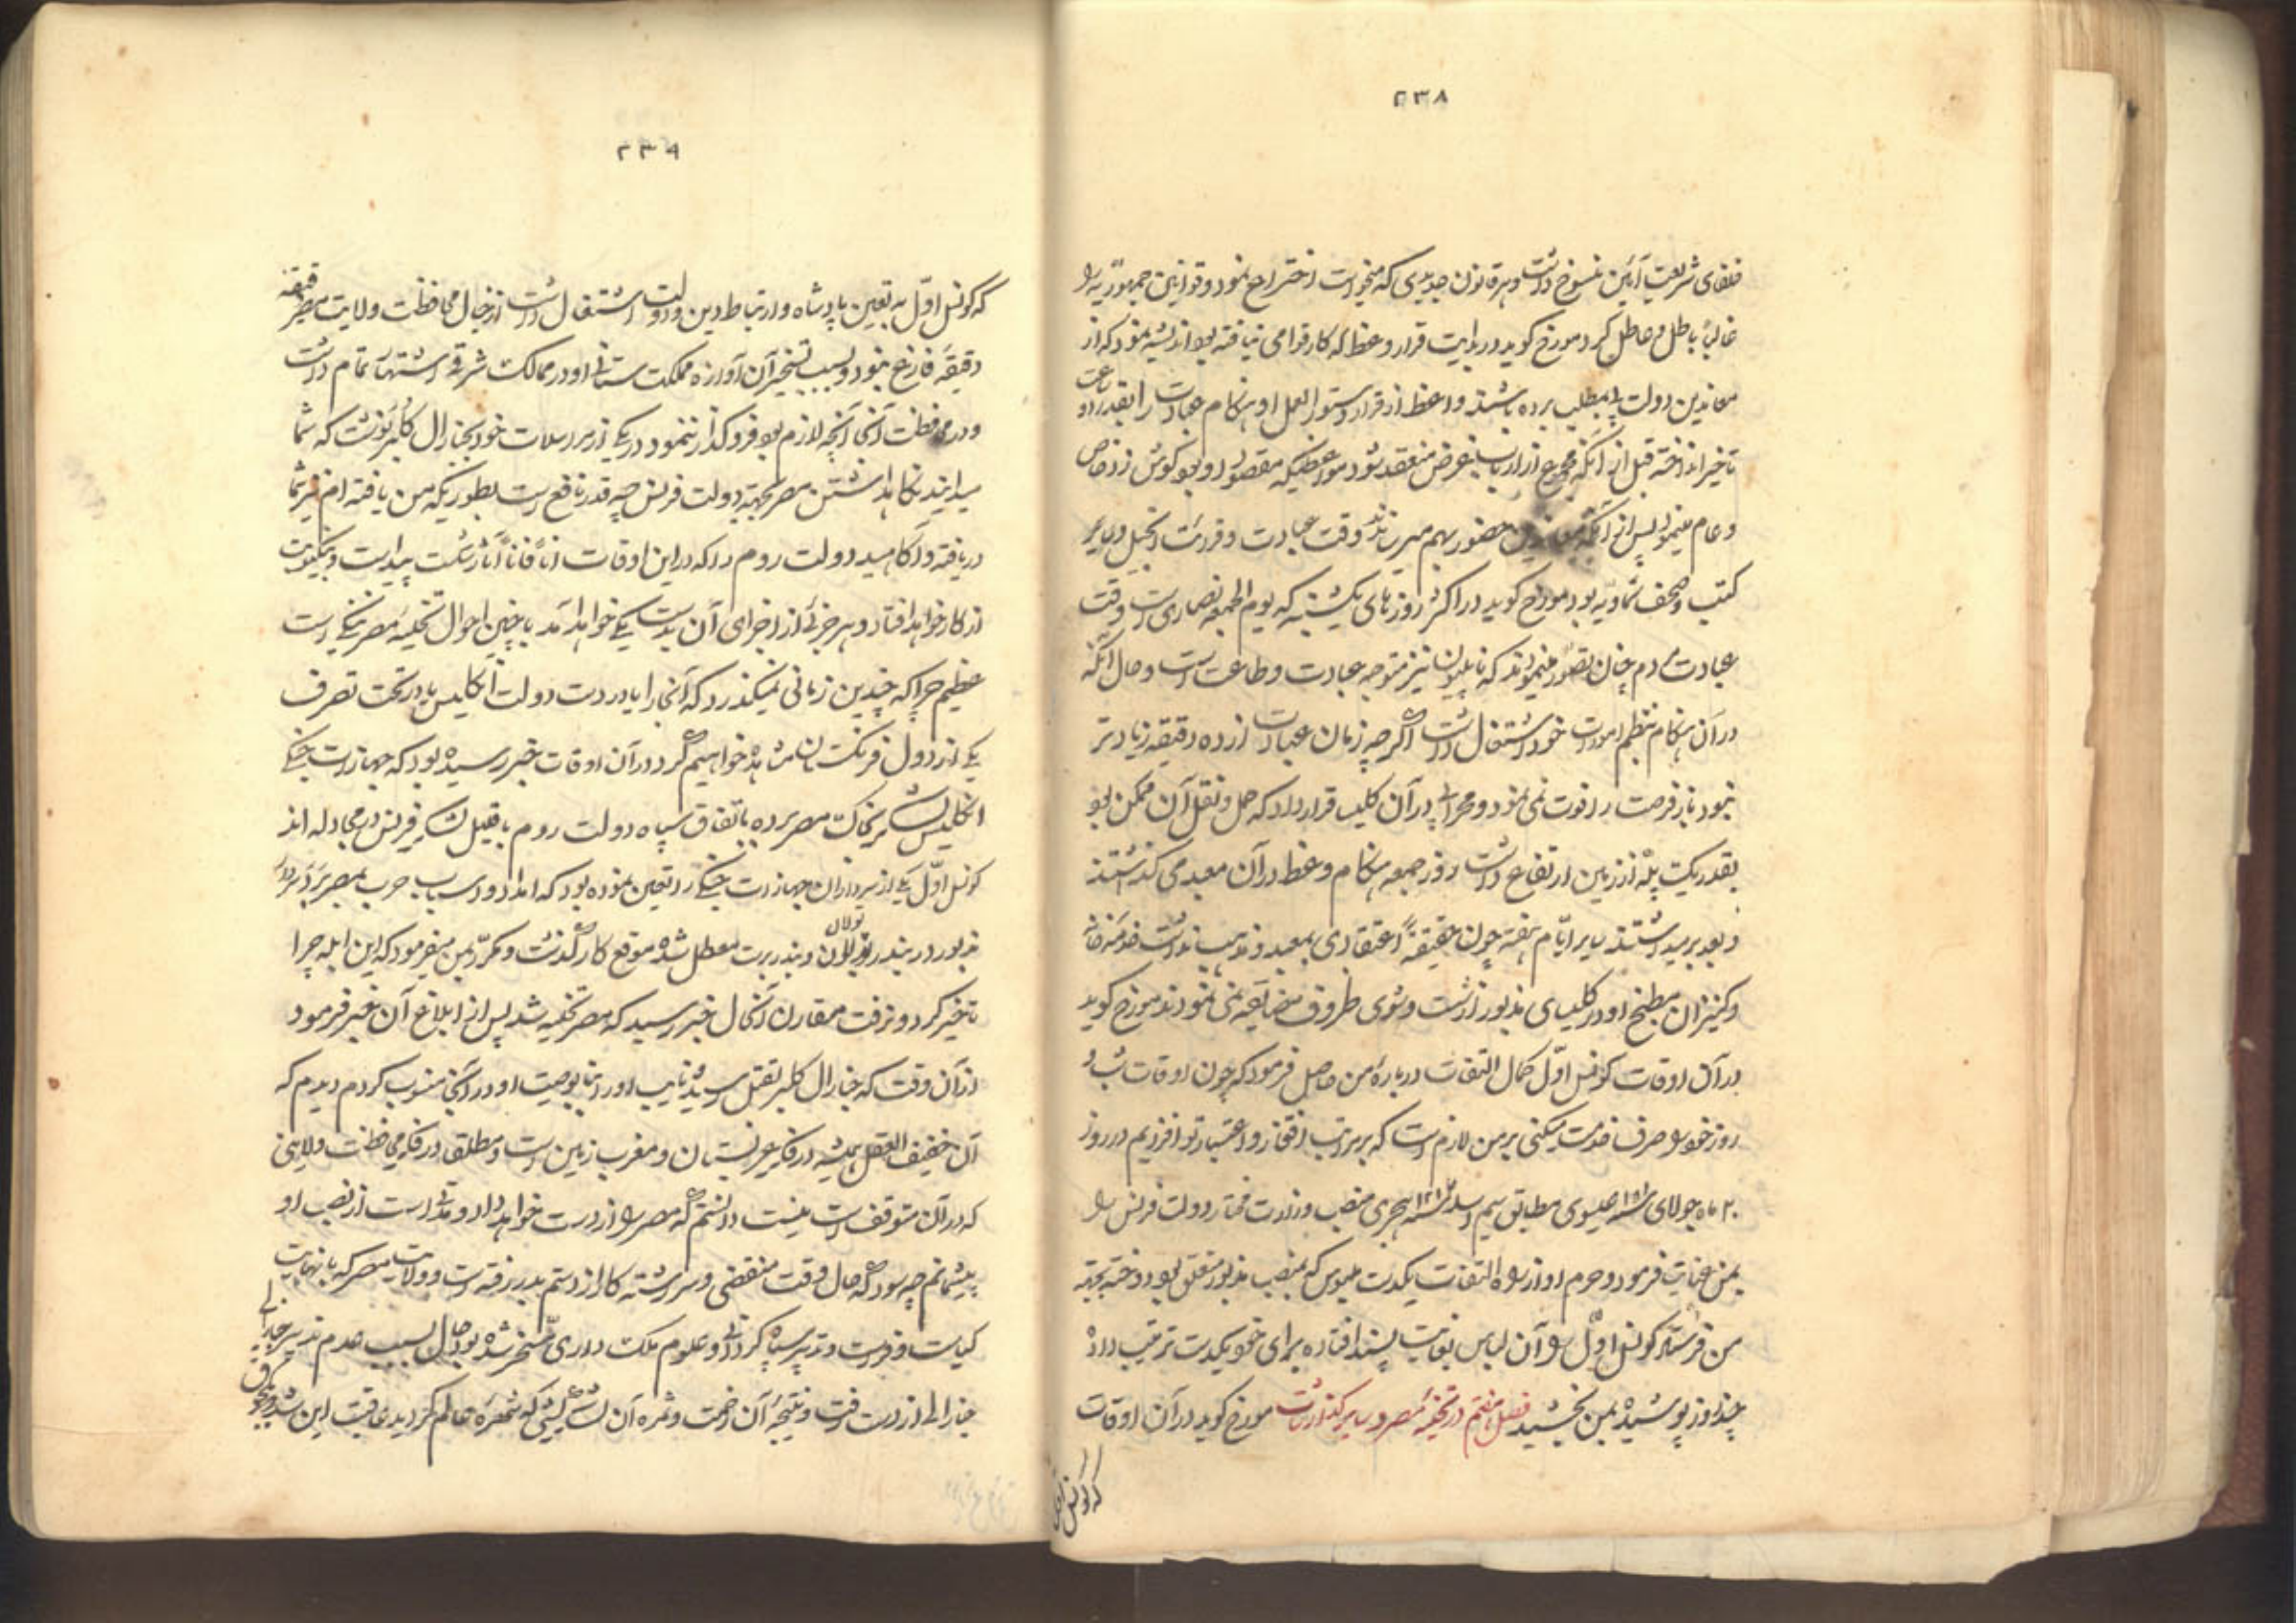 ۲۳۸
خلفای شریعت آئین منسوخ داشت و هر قانون جدیدی که میخواست اختراع نمود و قوانین جمهوریه را
غالباً باطل و عاطل کرد مورخ کوید در بدایت قرار وعظ که کار قوامی نیافته بود اندیشه نمود که از
معاندین دولت پی بمطلب برده باشند واعظ از قرار دستور العمل او هنکام عبادت را بقدر دو ساعت
تاخیر انداخته قبل از آنکه مجمع از ارباب غرض منعقد شود موعظتیکه مقصود او بود کوش زد خاص
و عام مینمود پس از آنکه معاندین حضور بهم میرساندند وقت عبادت و قرائت انجیل و سایر
کتب و صحف سماویه بود مورخ کوید در اکثر روزهای یکشنبه که یوم الجمعه نصاری است وقت
عبادت مردم چنان تصور مینمودند که ناپلیون نیز متوجه عبادت و طاعت است و حال آنکه
در آن هنکام بنظم امورات خود اشتغال داشت اکرچه زمان عبادت از ده دقیقه زیادتر
نبود باز فرصت را فوت نمی نمود و محرابی در آن کلیسا قرار داد که حمل و نقل آن ممکن بود
بقدر یک پله از زمین ارتفاع داشت روز جمعه هنکام وعظ در آن معبد می کذاشتند
و بعد بر میداشتند سایر ایام هفته چون حقیقةً اعتقادی بمعبد و مذهب نداشت خدمه خاصه
و کنیزان مطبخ او در کلیسای مذبور از شست و شوی ظروف مضایقه نمی نمودند مورخ کوید
در آن اوقات کونسل اول کمال التفات درباره من حاصل فرمود که چون اوقات شب و
روز خود را صرف خدمت میکنی بر من لازم است که بر مراتب افتخار و اعتبار تو افزایم در روز
۲۰ ماه جولای سنه ۱۸۰۱ عیسوی مطابق سیم سنه ۱۲۱۶ هجری منصب وزارت مختار دولت فرنس را
بمن عنایت فرمود و حرم او از راه التفات یکدست ملبوس که بمنصب مذبور متعلق بود دوخته بجهة
من فرستاد کونسل اول را آن لباس بغایت پسند افتاده برای خود یکدست ترتیب داده
چند روز پوشیده بمن بخشید فصل هفتم در تخلیه مصر و سایر کذارشات مورخ کوید در آن اوقات
که کونسل اول
۲۳۹
که کونسل اول به تعیین پادشاه و ارتباط دین و دولت اشتغال داشت از خیال محافظت ولایت مصر دقیقه
دقیقه فارغ نبود و بسبب تسخیر آن آوازه مملکت ستانی او در ممالک شرقیه اشتهار تمام داشت
و در محافظت آنجا آنچه لازم بود فروکذار ننمود در یکی از مراسلات خود بجنارال کلبر نوشت که شما
میدانید نکاهداشتن مصر بجهة دولت فرنس چه قدر نافع است بطوریکه من یافته ام نیز شما
دریافته و آکاهید دولت روم را که در این اوقات آناً فآناً آثار شکست پیداست و بیکبارت
از کار خواهد افتاد و هر جزئی از اجزای آن بدست یکی خواهد آمد با چنین احوال تخلیه مصر ننکی است
عظیم چرا که چندین زمانی نمیکذرد که آنجا را یا در دست دولت انکلیس یا در تحت تصرف
یکی از دول فرنکستان مشاهده خواهیم کرد و در آن اوقات خبر رسیده بود که جهازات جنکی
انکلیس لشکر بخاک مصر برده باتفاق سپاه دولت روم با قلیل لشکر فرنس در مجادله اند
کونسل اول یکی از سرداران جهازات جنکی را تعیین نموده بود که امداد و اسباب حرب بمصر برد سردار
مذبور در بندر تولان و بندر برست معطل شده موقع کار کذشت و مکرر بمن میفرمود که این ابله چرا
تاخیر کرد و نرفت مقارن آنحال خبر رسید که مصر تخلیه شد پس از ابلاغ آن خبر فرمود
از آن وقت که جنارال کلبر بقتل رسید نایب او را بنا بوصیت او در آنجا منسوب کردم دیدم که
آن خفیف العقل همیشه در فکر عربستان و مغرب زمین است و مطلقا در فکر محافظت ولایتی
که در آن متوقف است نیست دانستم که مصر را از دست خواهد داد و مدتی است از نصب او
پشیمانم چه سود که حال وقت منقضی و سررشته کار از دستم بدر رفته است و ولایت مصر که با نهایت
کیاست و فراست و تدبیر سپاه کردانی و علوم ملک داری مسخر شده بود حال بسبب عدم تدبیر جنارالی
جنارالی از دست رفت و نتیجه آن زحمت و ثمره آن لشکر کشی که شهره عالم کردید عاقبت این شد